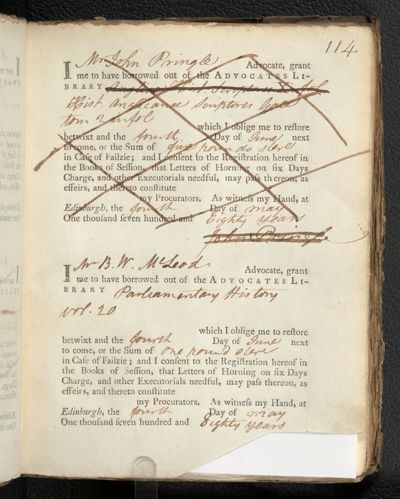 114
I Mr John Pringle Advocate, grant
me to have borrowed out of the ADVOCATES LI-
BRARY
Hist. Anglicanae Scriptores
tom 2 in fol
which I oblige me to restore
betwixt and the fourth Day of June next
to come, or the Sum of five pounds sters
in Case of Failzie; and I consent to the Registration hereof in
the Books of Session, that Letters of Horning on six Days
Charge, and other Executorials needful, may pass thereon, as
effeirs, and thereto constitute
my Procurators. As witness my Hand, at
Edinburgh, the fourth Day of may
One thousand seven hundred and Eighty years
John Pringle
I Mr B. W. McLeod Advocate, grant
me to have borrowed out of the ADVOCATES LI-
BRARY Parliamentary History
vol. 20
which I oblige me to restore
betwixt and the fourth Day of June next
to come, or the Sum of One pound sters
in Case of Failzie; and I consent to the Registration hereof in
the Books of Session, that Letters of Horning on six Days
Charge, and other Executorials needful, may pass thereon, as
effeirs, and thereto constitute
my Procurators. As witness my Hand, at
Edinburgh, the fourth Day of may
One thousand seven hundred and Eighty years